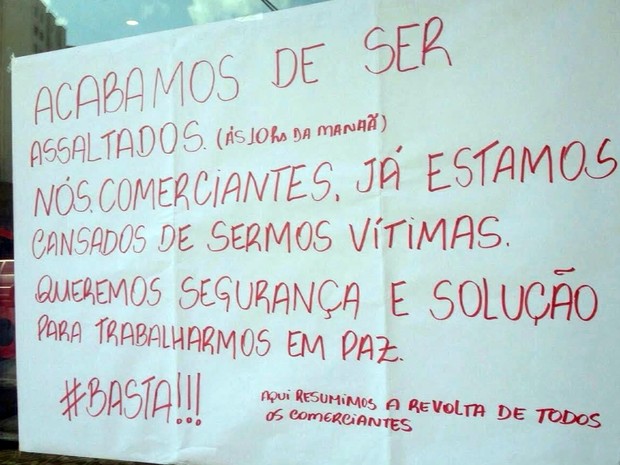 ACABAMOS DE SER
ASSALTADOS. (ÀS 10hs DA MANHÃ)
NÓS. COMERCIANTES, JÁ ESTAMOS
CANSADOS DE SERMOS VÍTIMAS.
QUEREMOS SEGURANÇA E SOLUÇÃO
PARA TRABALHARMOS EM PAZ.
#BASTA!!!
AQUI RESUMIMOS A REVOLTA DE TODOS
OS COMERCIANTES